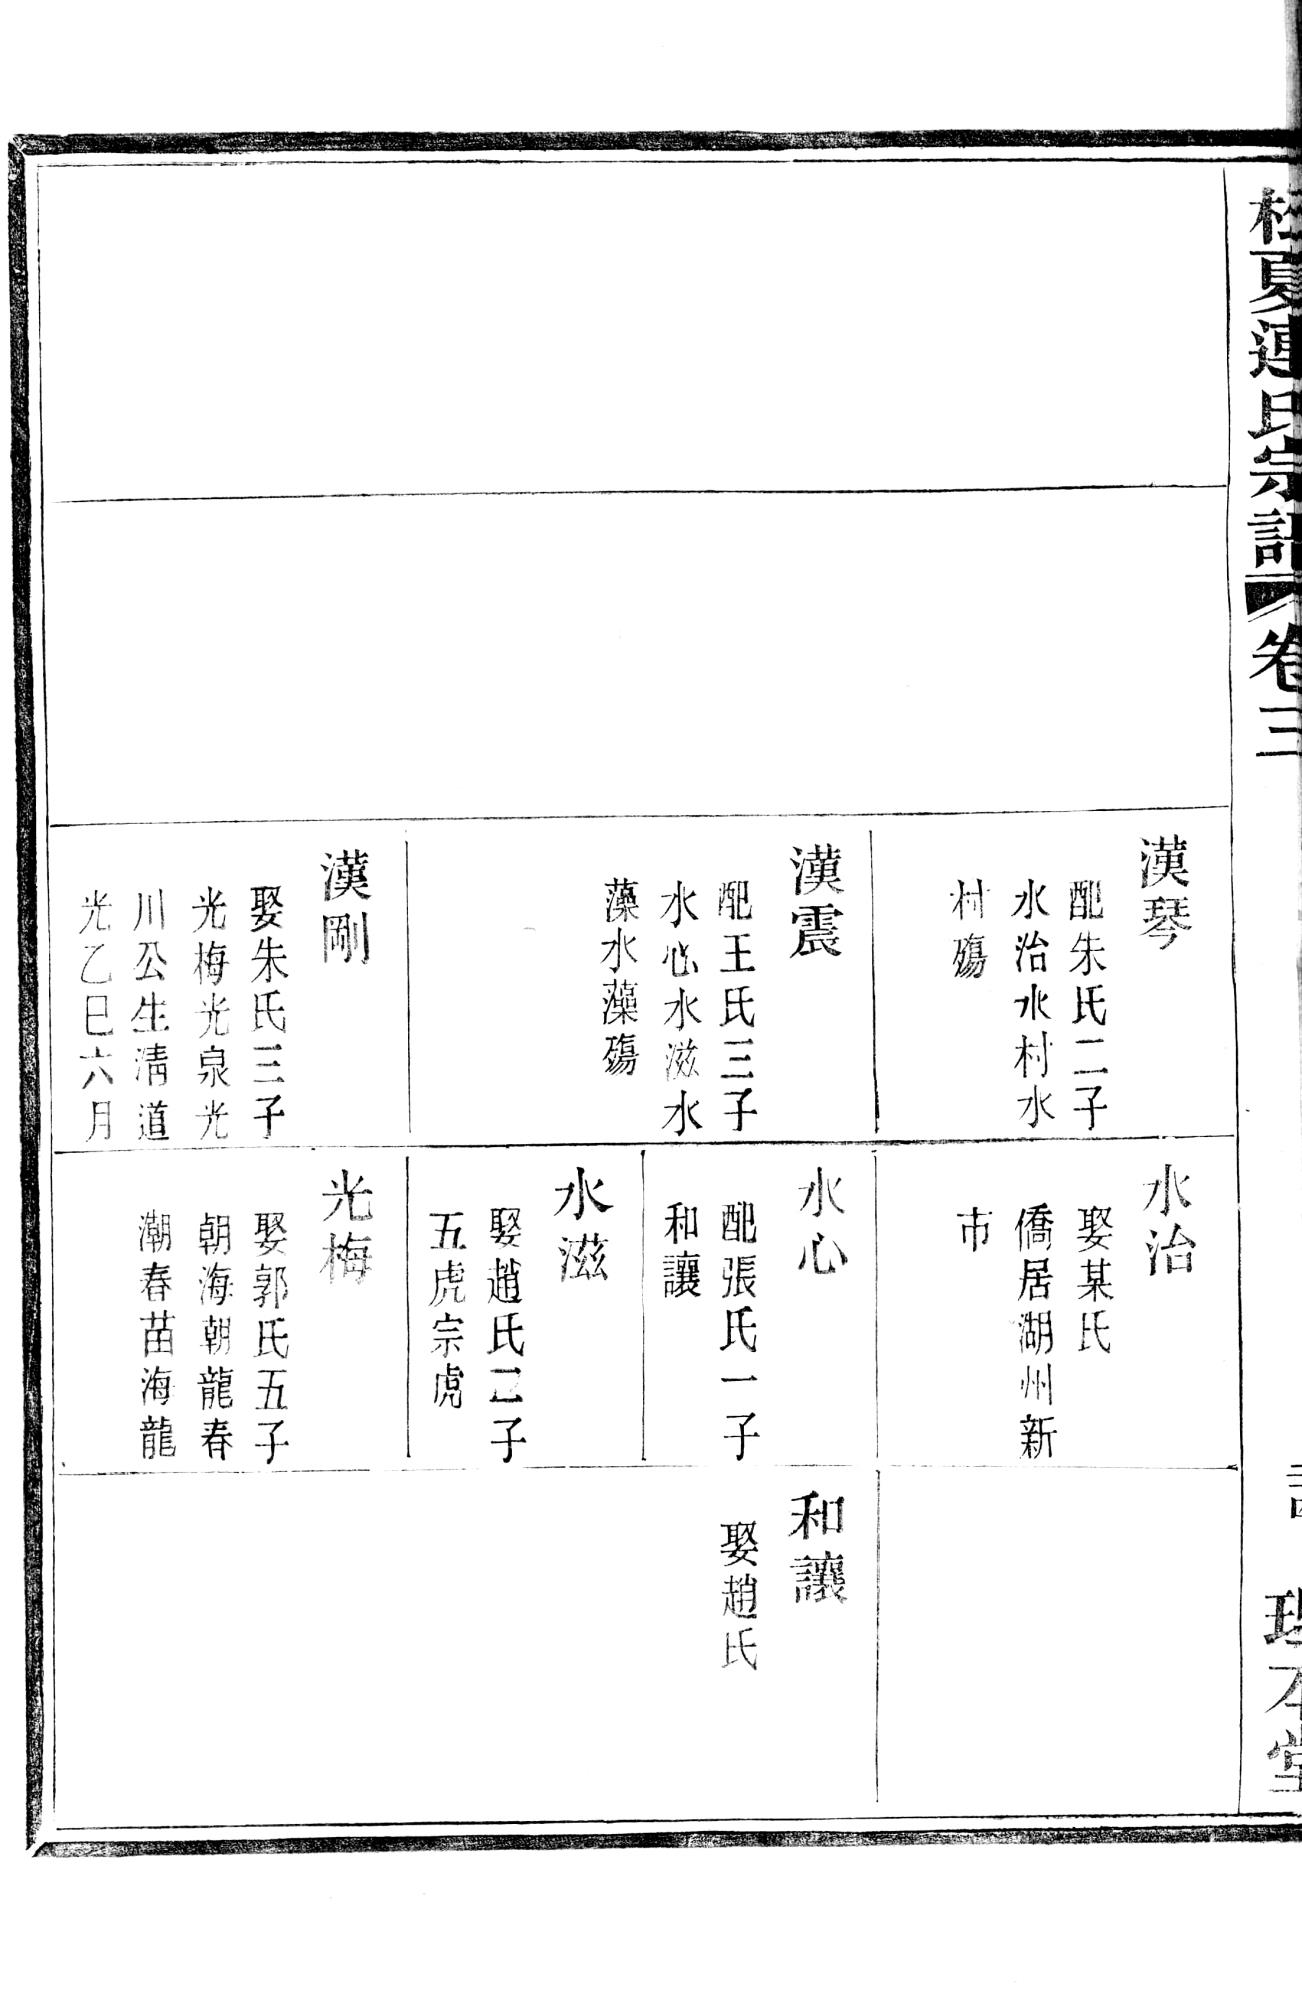 夏連氏宗譜 卷三
漢琴
配朱氏二子
水治水村水
村殤
漢震
配王氏三子
水心水滋水
藻水藻殤
漢剛
娶朱氏三子
光梅光泉光
川公生淸道
光乙巳六月
水治
娶某氏
僑居湖州新
市
水心
配張氏一子
和讓
水滋
娶趙氏二子
五虎宗虎
光梅
娶郭氏五子
朝海朝龍春
潮春苗海龍
和讓
娶趙氏
本堂